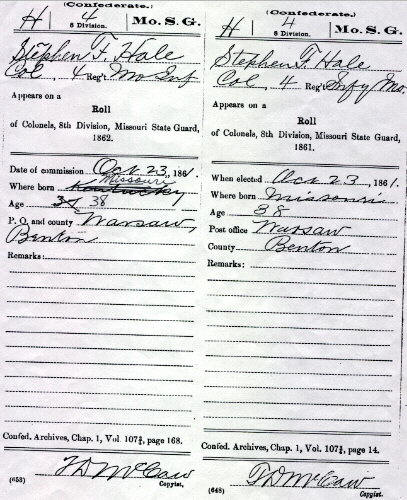 (Confederate.)
H 4 Mo. S. G.
8 Division.
Stephen F. Hale
Col, 4 Reg't Mo Inf
Appears on a
Roll
of Colonels, 8th Division, Missouri State Guard,
1862.
Date of commission Oct 23, 1861.
Missouri
Where born Kentucky
Age 38
P. O. and county Warsaw,
Benton
Remarks:
Confed. Archives, Chap. 1, Vol. 107¾, page 168.
T D McCaw
(653) Copyist.
(Confederate.)
H 4 Mo. S. G.
8 Division.
Stephen F. Hale
Col, 4 Reg't Infy Mo.
Appears on a
Roll
of Colonels, 8th Division, Missouri State Guard,
1861.
When elected Oct 23, 1861.
Where born Missouri
Age 38
Post office Warsaw
County Benton
Remarks:
Confed. Archives, Chap. 1, Vol. 107¾, page 14.
T D McCaw
(648) Copyist.